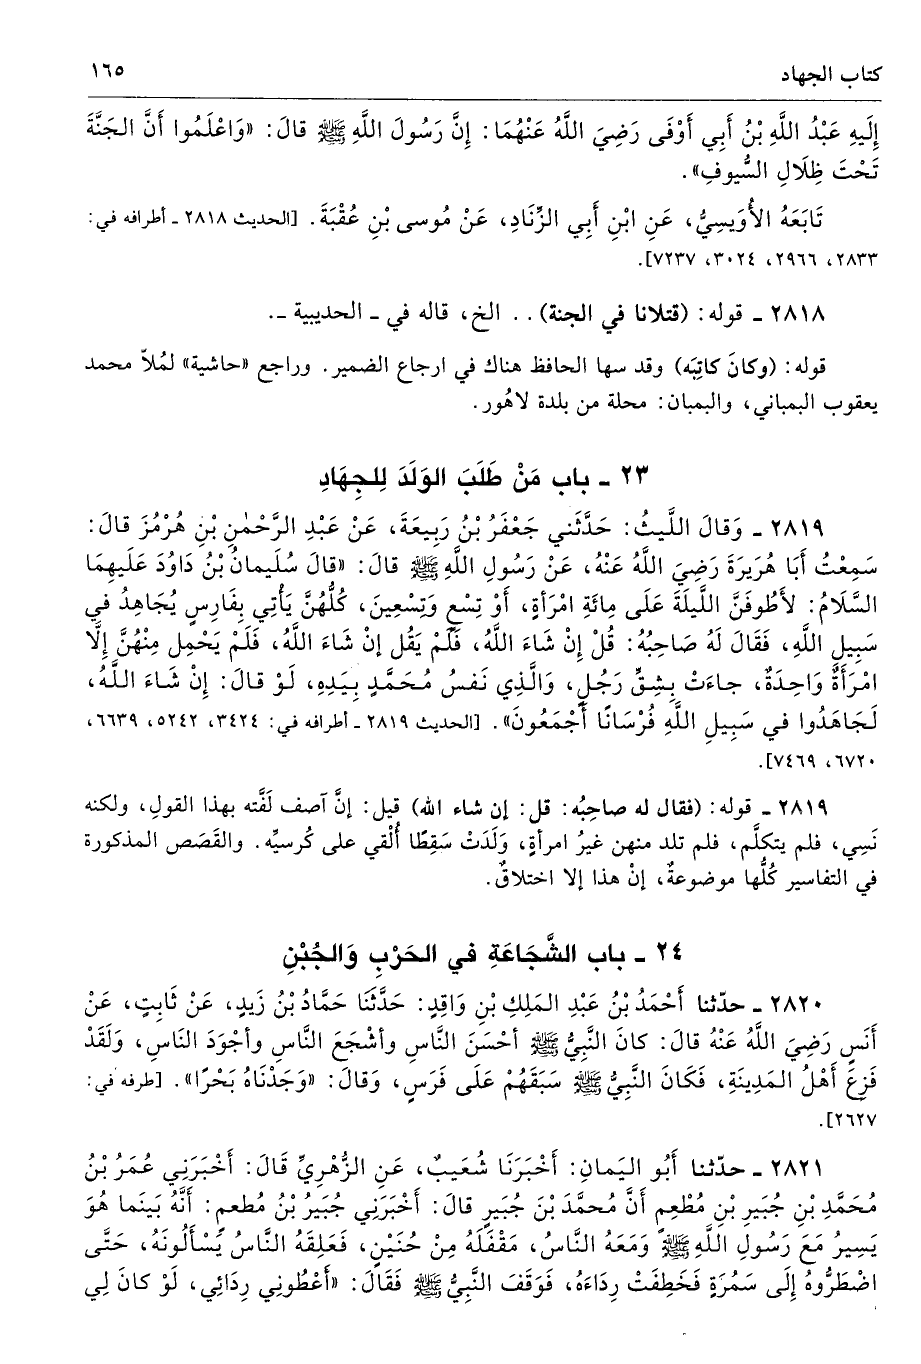 كتاب الجهاد ١٦٥
إِلَيهِ عَبْدُ اللَّهِ بْنُ أَبِي أَوْفَى رَضِيَ اللَّهُ عَنْهُمَا: إِنَّ رَسُولَ اللَّهِ ﷺ قالَ: «وَاعْلَمُوا أَنَّ الجَنَّةَ
تَحْتَ ظِلَالِ السُّيوفِ».
تَابَعَهُ الأُوَيسِيُّ، عَنِ ابْنِ أَبِي الزِّنَادِ، عَنْ مُوسى بْنِ عُقْبَةَ. [الحديث ٢٨١٨ ـ أطرافه في:
٢٨٣٣، ٢٩٦٦، ٣٠٢٤، ٧٢٣٧].
٢٨١٨ ـ قوله: (قتلانا في الجنة) . . الخ، قاله في ـ الحديبية ـ.
قوله: (وكانَ كاتِبَه) وقد سها الحافظ هناك في ارجاع الضمير. وراجع «حاشية» لمُلاّ محمد
يعقوب البمباني، والبمبان: محلة من بلدة لاهُور.
٢٣ ـ باب مَنْ طَلَبَ الوَلَدَ لِلجِهَادِ
٢٨١٩ ـ وَقالَ اللَّيثُ: حَدَّثَني جَعْفَرُ بْنُ رَبِيعَةَ، عَنْ عَبْدِ الرَّحْمٰنِ بْنِ هُرْمُزَ قالَ:
سَمِعْتُ أَبَا هُرَيرَةَ رَضِيَ اللَّهُ عَنْهُ، عَنْ رَسُولِ اللَّهِ ﷺ قالَ: «قالَ سُلَيمانُ بْنُ دَاوُدَ عَلَيهِمَا
السَّلَامُ: لأَطُوفَنَّ اللَّيلَةَ عَلَى مِائَةِ امْرَأَةٍ، أَوْ تِسْعٍ وَتِسْعِينَ، كُلُّهُنَّ يَأْتِي بِفَارِسٍ يُجَاهِدُ في
سَبِيلِ اللَّهِ، فَقَالَ لَهُ صَاحِبُهُ: قُلْ إِنْ شَاءَ اللَّهُ، فَلَمْ يَقُل إِنْ شَاءَ اللَّهُ، فَلَمْ يَحْمِل مِنْهُنَّ إِلَّا
امْرَأَةٌ وَاحِدَةٌ، جاءَتْ بِشِقِّ رَجُلٍ، وَالَّذِي نَفسُ مُحَمَّدٍ بِيَدِهِ، لَوْ قالَ: إِنْ شَاءَ اللَّهُ،
لَجَاهَدُوا في سَبِيلِ اللَّهِ فُرْسَانًا أَجْمَعُونَ». [الحديث ٢٨١٩ ـ أطرافه في: ٣٤٢٤، ٥٢٤٢، ٦٦٣٩،
٦٧٢٠، ٧٤٦٩].
٢٨١٩ ـ قوله: (فقال له صاحِبُه: قل: إن شاء الله) قيل: إنَّ آصف لَقَّنه بهذا القولِ، ولكنه
نَسِي، فلم يتكلَّم، فلم تلد منهن غيرُ امرأةٍ، وَلَدَتْ سَقِطًا أُلْقي على كُرسيِّه. والقَصَص المذكورة
في التفاسير كُلُّها موضوعةٌ، إنْ هذا إلا اختلاقٌ.
٢٤ ـ باب الشَّجَاعَةِ في الحَرْبِ وَالجُبْنِ
٢٨٢٠ ـ حدّثنا أَحْمَدُ بْنُ عَبْدِ المَلِكِ بْنِ وَاقِدٍ: حَدَّثَنَا حَمَّادُ بْنُ زَيدٍ، عَنْ ثَابِتٍ، عَنْ
أَنَسٍ رَضِيَ اللَّهُ عَنْهُ قالَ: كانَ النَّبِيُّ ﷺ أَحْسَنَ النَّاسِ وأَشْجَعَ النَّاسِ وأَجْوَدَ النَّاسِ، وَلَقَدْ
فَزِعَ أَهْلُ المَدِينَةِ، فَكَانَ النَّبِيُّ ﷺ سَبَقَهُمْ عَلَى فَرَسٍ، وَقالَ: «وَجَدْنَاهُ بَحْرًا». [طرفه في:
٢٦٢٧].
٢٨٢١ ـ حدّثنا أَبُو اليَمانِ: أَخْبَرَنَا شُعَيبٌ، عَنِ الزُّهْرِيِّ قَالَ: أَخْبَرَنِي عُمَرُ بْنُ
مُحَمَّدِ بْنِ جُبَيرِ بْنِ مُطْعِمٍ أَنَّ مُحمَّدَ بْنَ جُبَيرٍ قالَ: أَخْبَرَنِي جُبَيرُ بْنُ مُطعِمٍ: أَنَّهُ بَينَما هُوَ
يَسِيرُ مَعَ رَسُولِ اللَّهِ ﷺ وَمَعَهُ النَّاسُ، مَقْفَلَهُ مِنْ حُنَيْنٍ، فَعَلِقَهُ النَّاسُ يَسْأَلُونَهُ، حَتَّى
اضْطَرُّوهُ إِلَى سَمُرَةٍ فَخَطِفَتْ رِدَاءَهُ، فَوَقَفَ النَّبِيُّ ﷺ فَقَالَ: «أَعْطُونِي رِدَائِي، لَوْ كانَ لِي